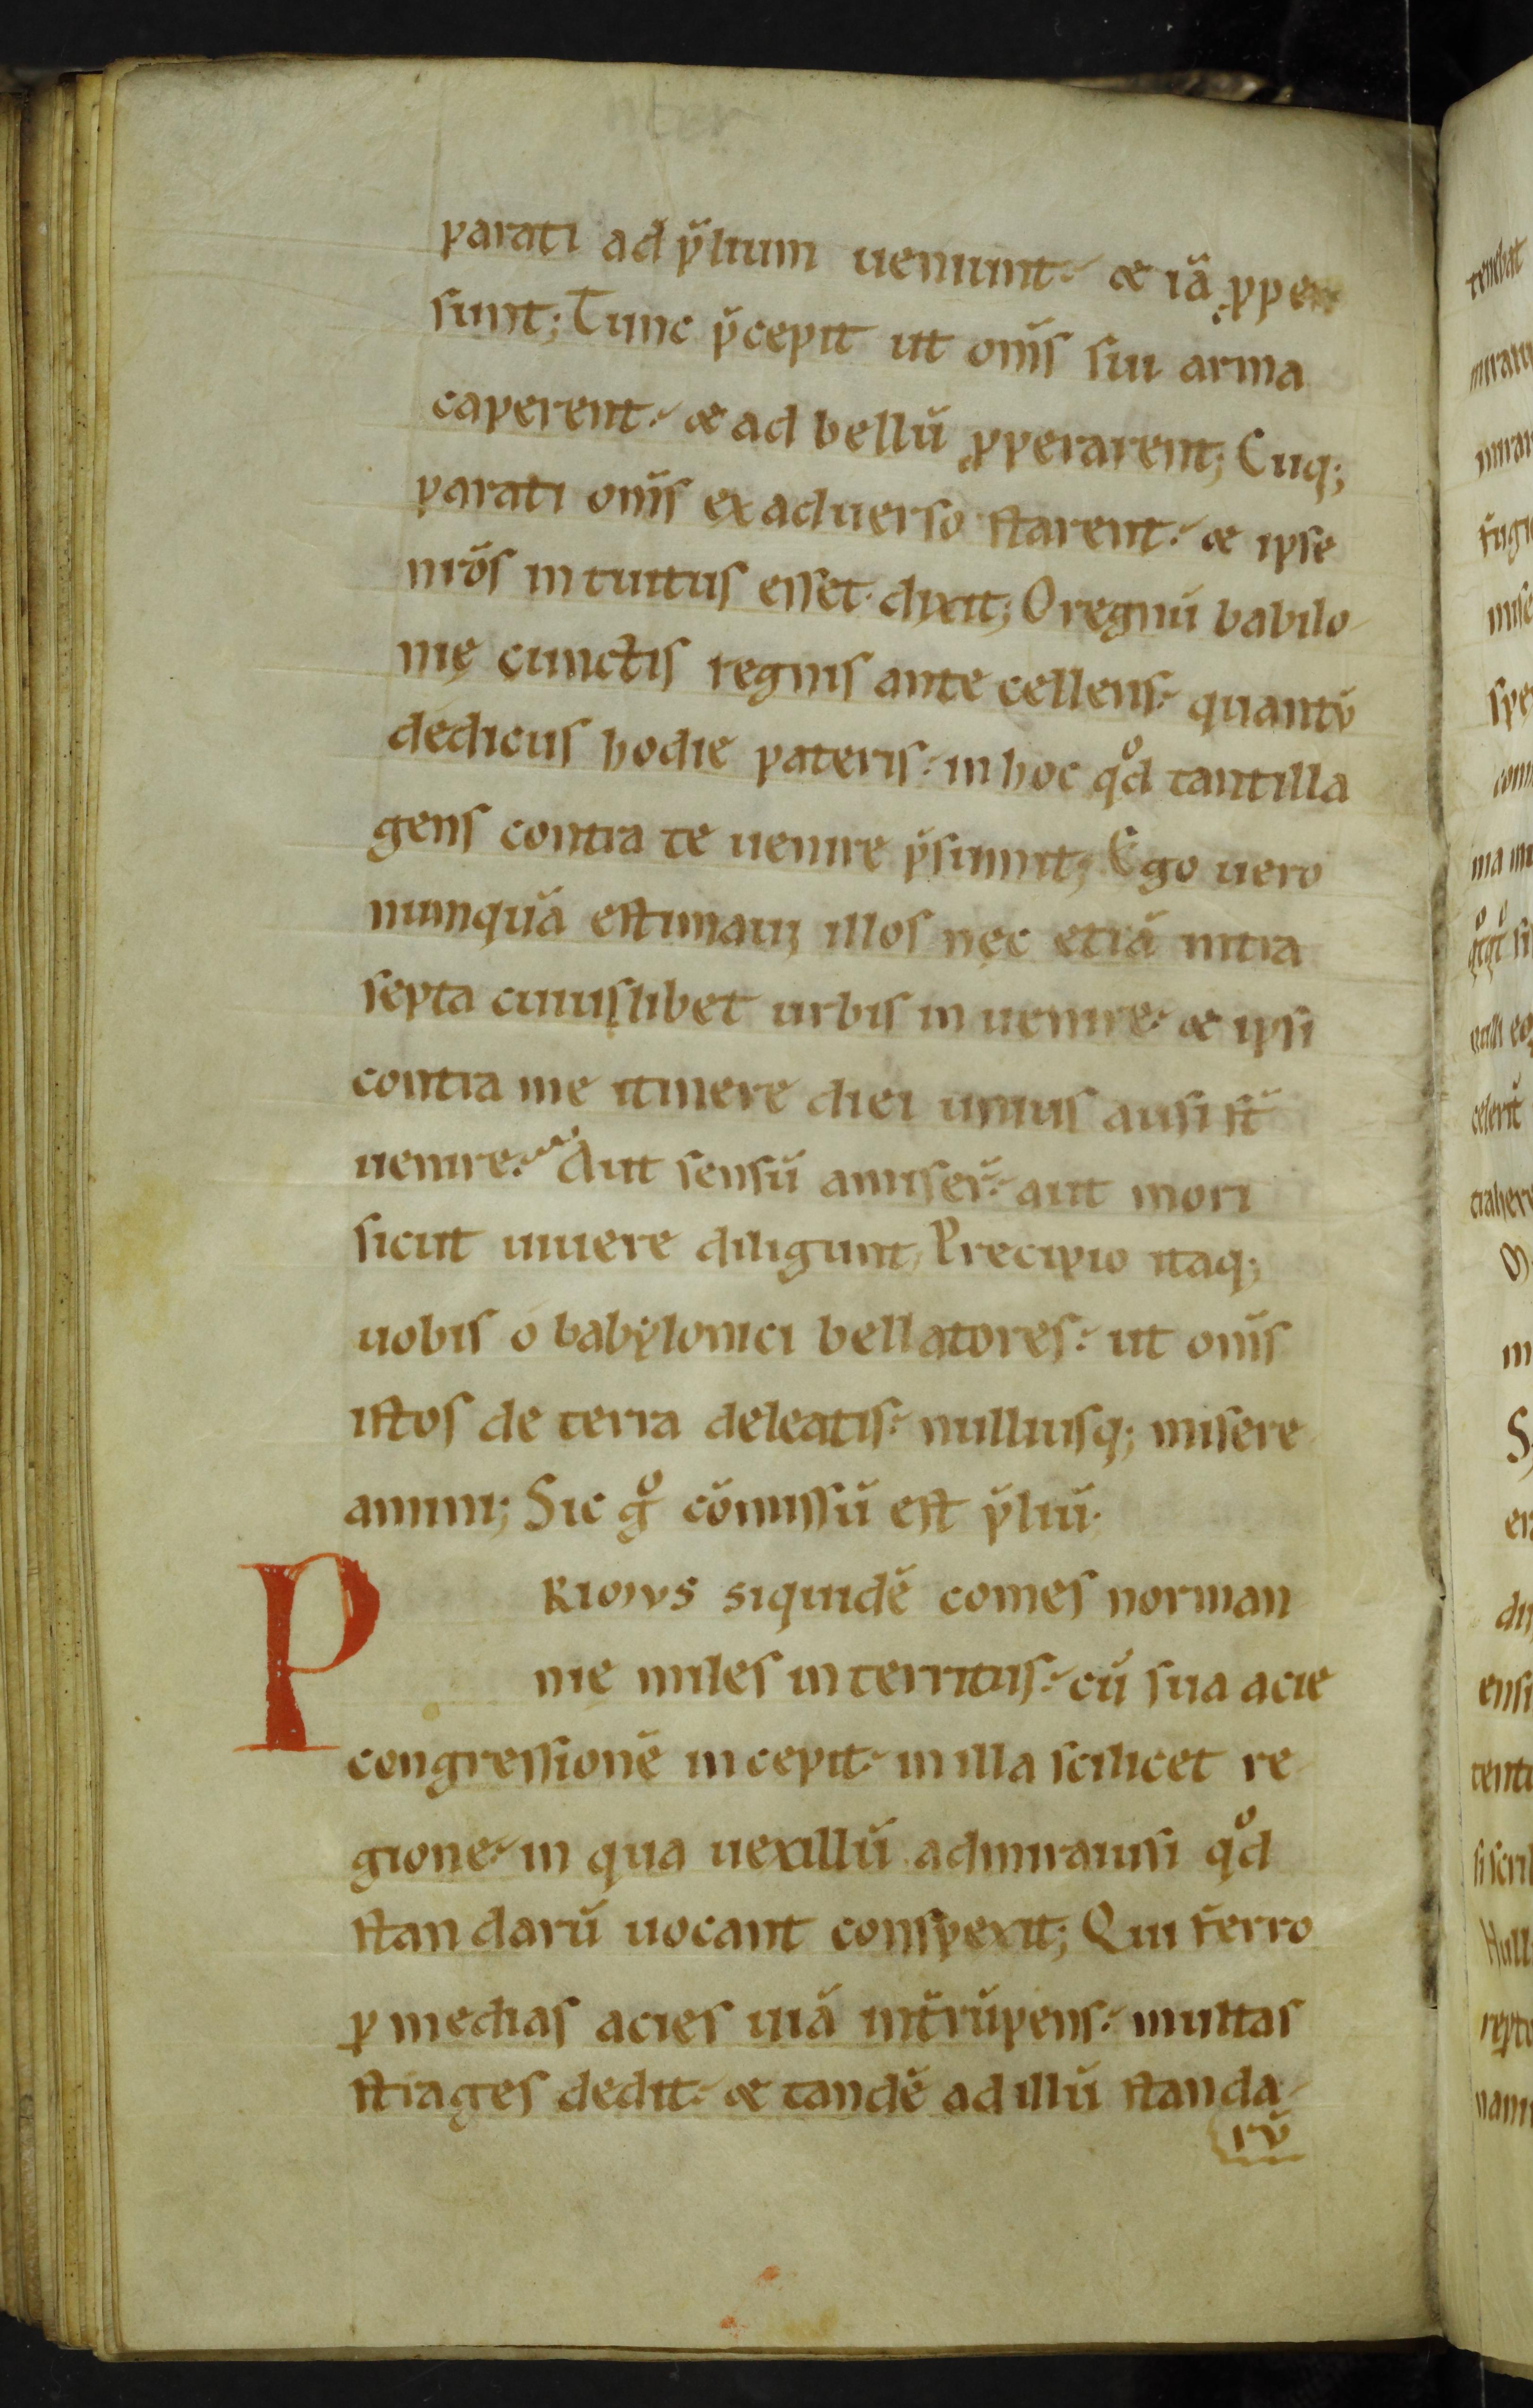 parati ad p̃lium ueniunt. & iã ꝓpe
sunt; Tunc p̃cepit ut om̃s sui arma
caperent. & ad bellũ ꝓperarent; Cuq;
parati om̃s ex aduerso starent. & ipse
nr̃os in tuitus esset. dixit; O regnũ babilo-
nię cunctis regnis ante cellens. quantũ
dedicus hodie pateris. in hoc qͦd tantilla
gens contra te uenire p̃sumit; Ego uero
numquã estimaui illos nec etiã intra
septa cuiuslibet urbis in uenire. & ipsi
contra me itinere diei unius ausi st̃
uenire. Aut sensũ amiser̃. aut mori
sicut uiuere diligunt; Precipio itaq;
uobis o babylonici bellatores. ut om̃s
istos de terra deleatis. nulliusq; misere
amini; Sic gͦ cõmissũ est p̃liũ.
PRIMVS siquidẽ comes norman
nię miles in territus. cũ sua acie
congressionẽ in cepit. in illa scilicet re
gione. in qua uexillũ admirauisi qͦd
stan darũ uocant conspexit; Qui ferro
ꝑ medias acies uiã int̃rũpens. multas
strages dedit. & tandẽ ad illũ standa-
rũ